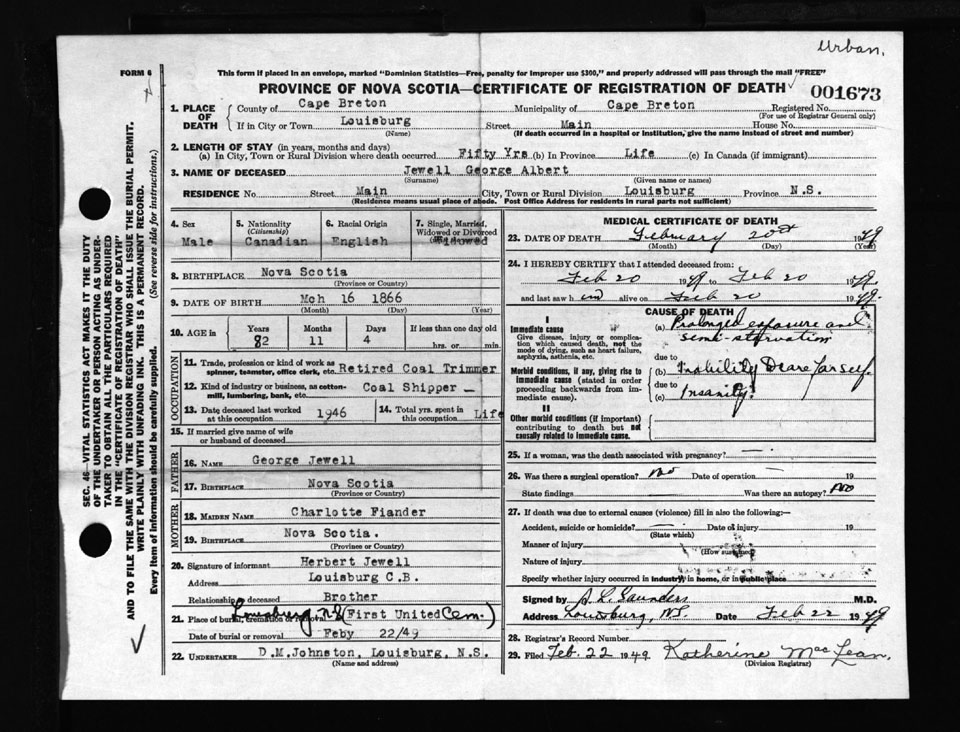 Urban.
FORM 6
This form if placed in an envelope, marked "Dominion Statistics—Free, penalty for improper use $300," and properly addressed will pass through the mail "FREE"
PROVINCE OF NOVA SCOTIA—CERTIFICATE OF REGISTRATION OF DEATH
001673
1. PLACE OF DEATH
County of Cape Breton Municipality of Cape Breton Registered No.
(For use of Registrar General only)
If in City or Town Louisburg Street Main House No.
(Name) (If death occurred in a hospital or institution, give the name instead of street and number)
2. LENGTH OF STAY (in years, months and days)
(a) In City, Town or Rural Division where death occurred Fifty Yrs (b) In Province Life (c) In Canada (if immigrant)
3. NAME OF DECEASED Jewell George Albert
(Surname) (Given name or names)
RESIDENCE No. Street Main City, Town or Rural Division Louisburg Province N.S.
(Residence means usual place of abode. Post Office Address for residents in rural parts not sufficient)
SEC. 46—VITAL STATISTICS ACT MAKES IT THE DUTY
OF THE UNDERTAKER OR PERSON ACTING AS UNDER-
TAKER TO OBTAIN ALL THE PARTICULARS REQUIRED
IN THE "CERTIFICATE OF REGISTRATION OF DEATH"
AND TO FILE THE SAME WITH THE DIVISION REGISTRAR WHO SHALL ISSUE THE BURIAL PERMIT.
WRITE PLAINLY WITH UNFADING INK. THIS IS A PERMANENT RECORD.
Every item of information should be carefully supplied. (See reverse side for instructions.)
4. Sex
Male
5. Nationality
(Citizenship)
Canadian
6. Racial Origin
English
7. Single, Married,
Widowed or Divorced
Widowed
8. BIRTHPLACE Nova Scotia
(Province or Country)
9. DATE OF BIRTH Mch 16 1866
(Month) (Day) (Year)
10. AGE in Years Months Days If less than one day old
82 11 4 hrs. or min.
OCCUPATION
11. Trade, profession or kind of work as
spinner, teamster, office clerk, etc. Retired Coal Trimmer
12. Kind of industry or business, as cotton-
mill, lumbering, bank, etc. Coal Shipper
13. Date deceased last worked
at this occupation 1946
14. Total yrs. spent in
this occupation Life
15. If married give name of wife
or husband of deceased
FATHER
16. NAME George Jewell
17. BIRTHPLACE Nova Scotia
(Province or Country)
MOTHER
18. MAIDEN NAME Charlotte Fiander
19. BIRTHPLACE Nova Scotia.
(Province or Country)
20. Signature of informant Herbert Jewell
Address Louisburg C.B.
Relationship to deceased Brother
21. Place of burial, cremation or removal Louisburg NS (First United Cem.)
Date of burial or removal Feby 22/49
22. UNDERTAKER D.M.Johnston, Louisburg, N.S.
(Name and address)
MEDICAL CERTIFICATE OF DEATH
23. DATE OF DEATH February 20th 1949
(Month) (Day) (Year)
24. I HEREBY CERTIFY that I attended deceased from:
Feb 20 1949 to Feb 20 1949.
and last saw him alive on Feb 20 1949.
CAUSE OF DEATH
I
Immediate cause
Give disease, injury or complica-
tion which caused death, not the
mode of dying, such as heart failure,
asphyxia, asthenia, etc.
(a) Prolonged exposure and
semi-starvation
due to
Morbid conditions, if any, giving rise to
immediate cause (stated in order
proceeding backwards from im-
mediate cause).
(b) Inability to care for self.
due to
(c) Insanity?
II
Other morbid conditions (if important)
contributing to death but not
causally related to immediate cause.
25. If a woman, was the death associated with pregnancy?
26. Was there a surgical operation? No Date of operation — 19
State findings Was there an autopsy? No
27. If death was due to external causes (violence) fill in also the following:—
Accident, suicide or homicide? — Date of injury 19
(State which)
Manner of injury
(How sustained)
Nature of injury
Specify whether injury occurred in industry, in home, or in public place
Signed by A. L. Saunders M.D.
Address Louisburg, N.S. Date Feb 22 1949
28. Registrar's Record Number
29. Filed Feb. 22 1949 Katherine MacLean.
(Division Registrar)